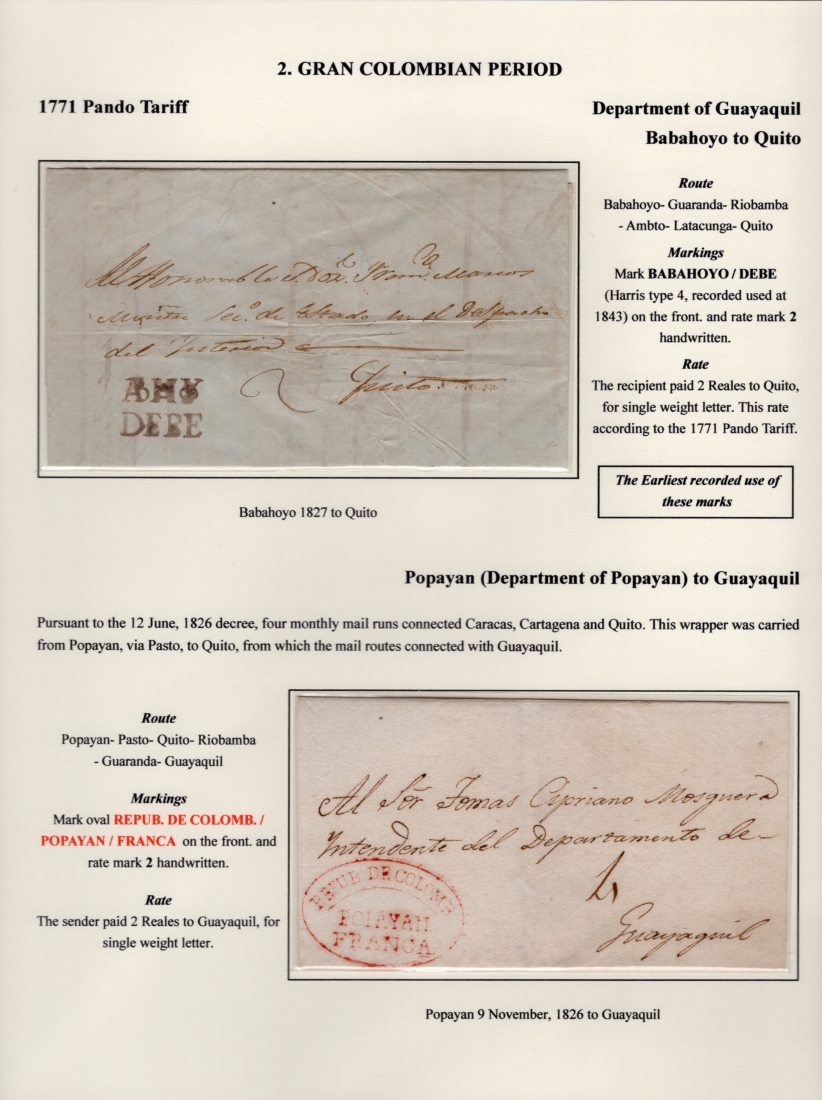 2. GRAN COLOMBIAN PERIOD
1771 Pando Tariff
Department of Guayaquil
Babahoyo to Quito
Al Honorable S. Dor. Franco. Marcos
Ministro Sec.o de Estado en el Despacho
del Interior
Quito
2
DEBE
Route
Babahoyo- Guaranda- Riobamba
- Ambto- Latacunga- Quito
Markings
Mark BABAHOYO / DEBE
(Harris type 4, recorded used at
1843) on the front. and rate mark 2
handwritten.
Rate
The recipient paid 2 Reales to Quito,
for single weight letter. This rate
according to the 1771 Pando Tariff.
The Earliest recorded use of
these marks
Babahoyo 1827 to Quito
Popayan (Department of Popayan) to Guayaquil
Pursuant to the 12 June, 1826 decree, four monthly mail runs connected Caracas, Cartagena and Quito. This wrapper was carried
from Popayan, via Pasto, to Quito, from which the mail routes connected with Guayaquil.
Route
Popayan- Pasto- Quito- Riobamba
- Guaranda- Guayaquil
Markings
Mark oval REPUB. DE COLOMB. /
POPAYAN / FRANCA on the front. and
rate mark 2 handwritten.
Rate
The sender paid 2 Reales to Guayaquil, for
single weight letter.
Al Sōr Tomas Cipriano Mosquera
Intendente del Departamento de
Guayaquil
REPUB. DE COLOMB
POPAYAN
FRANCA
Popayan 9 November, 1826 to Guayaquil